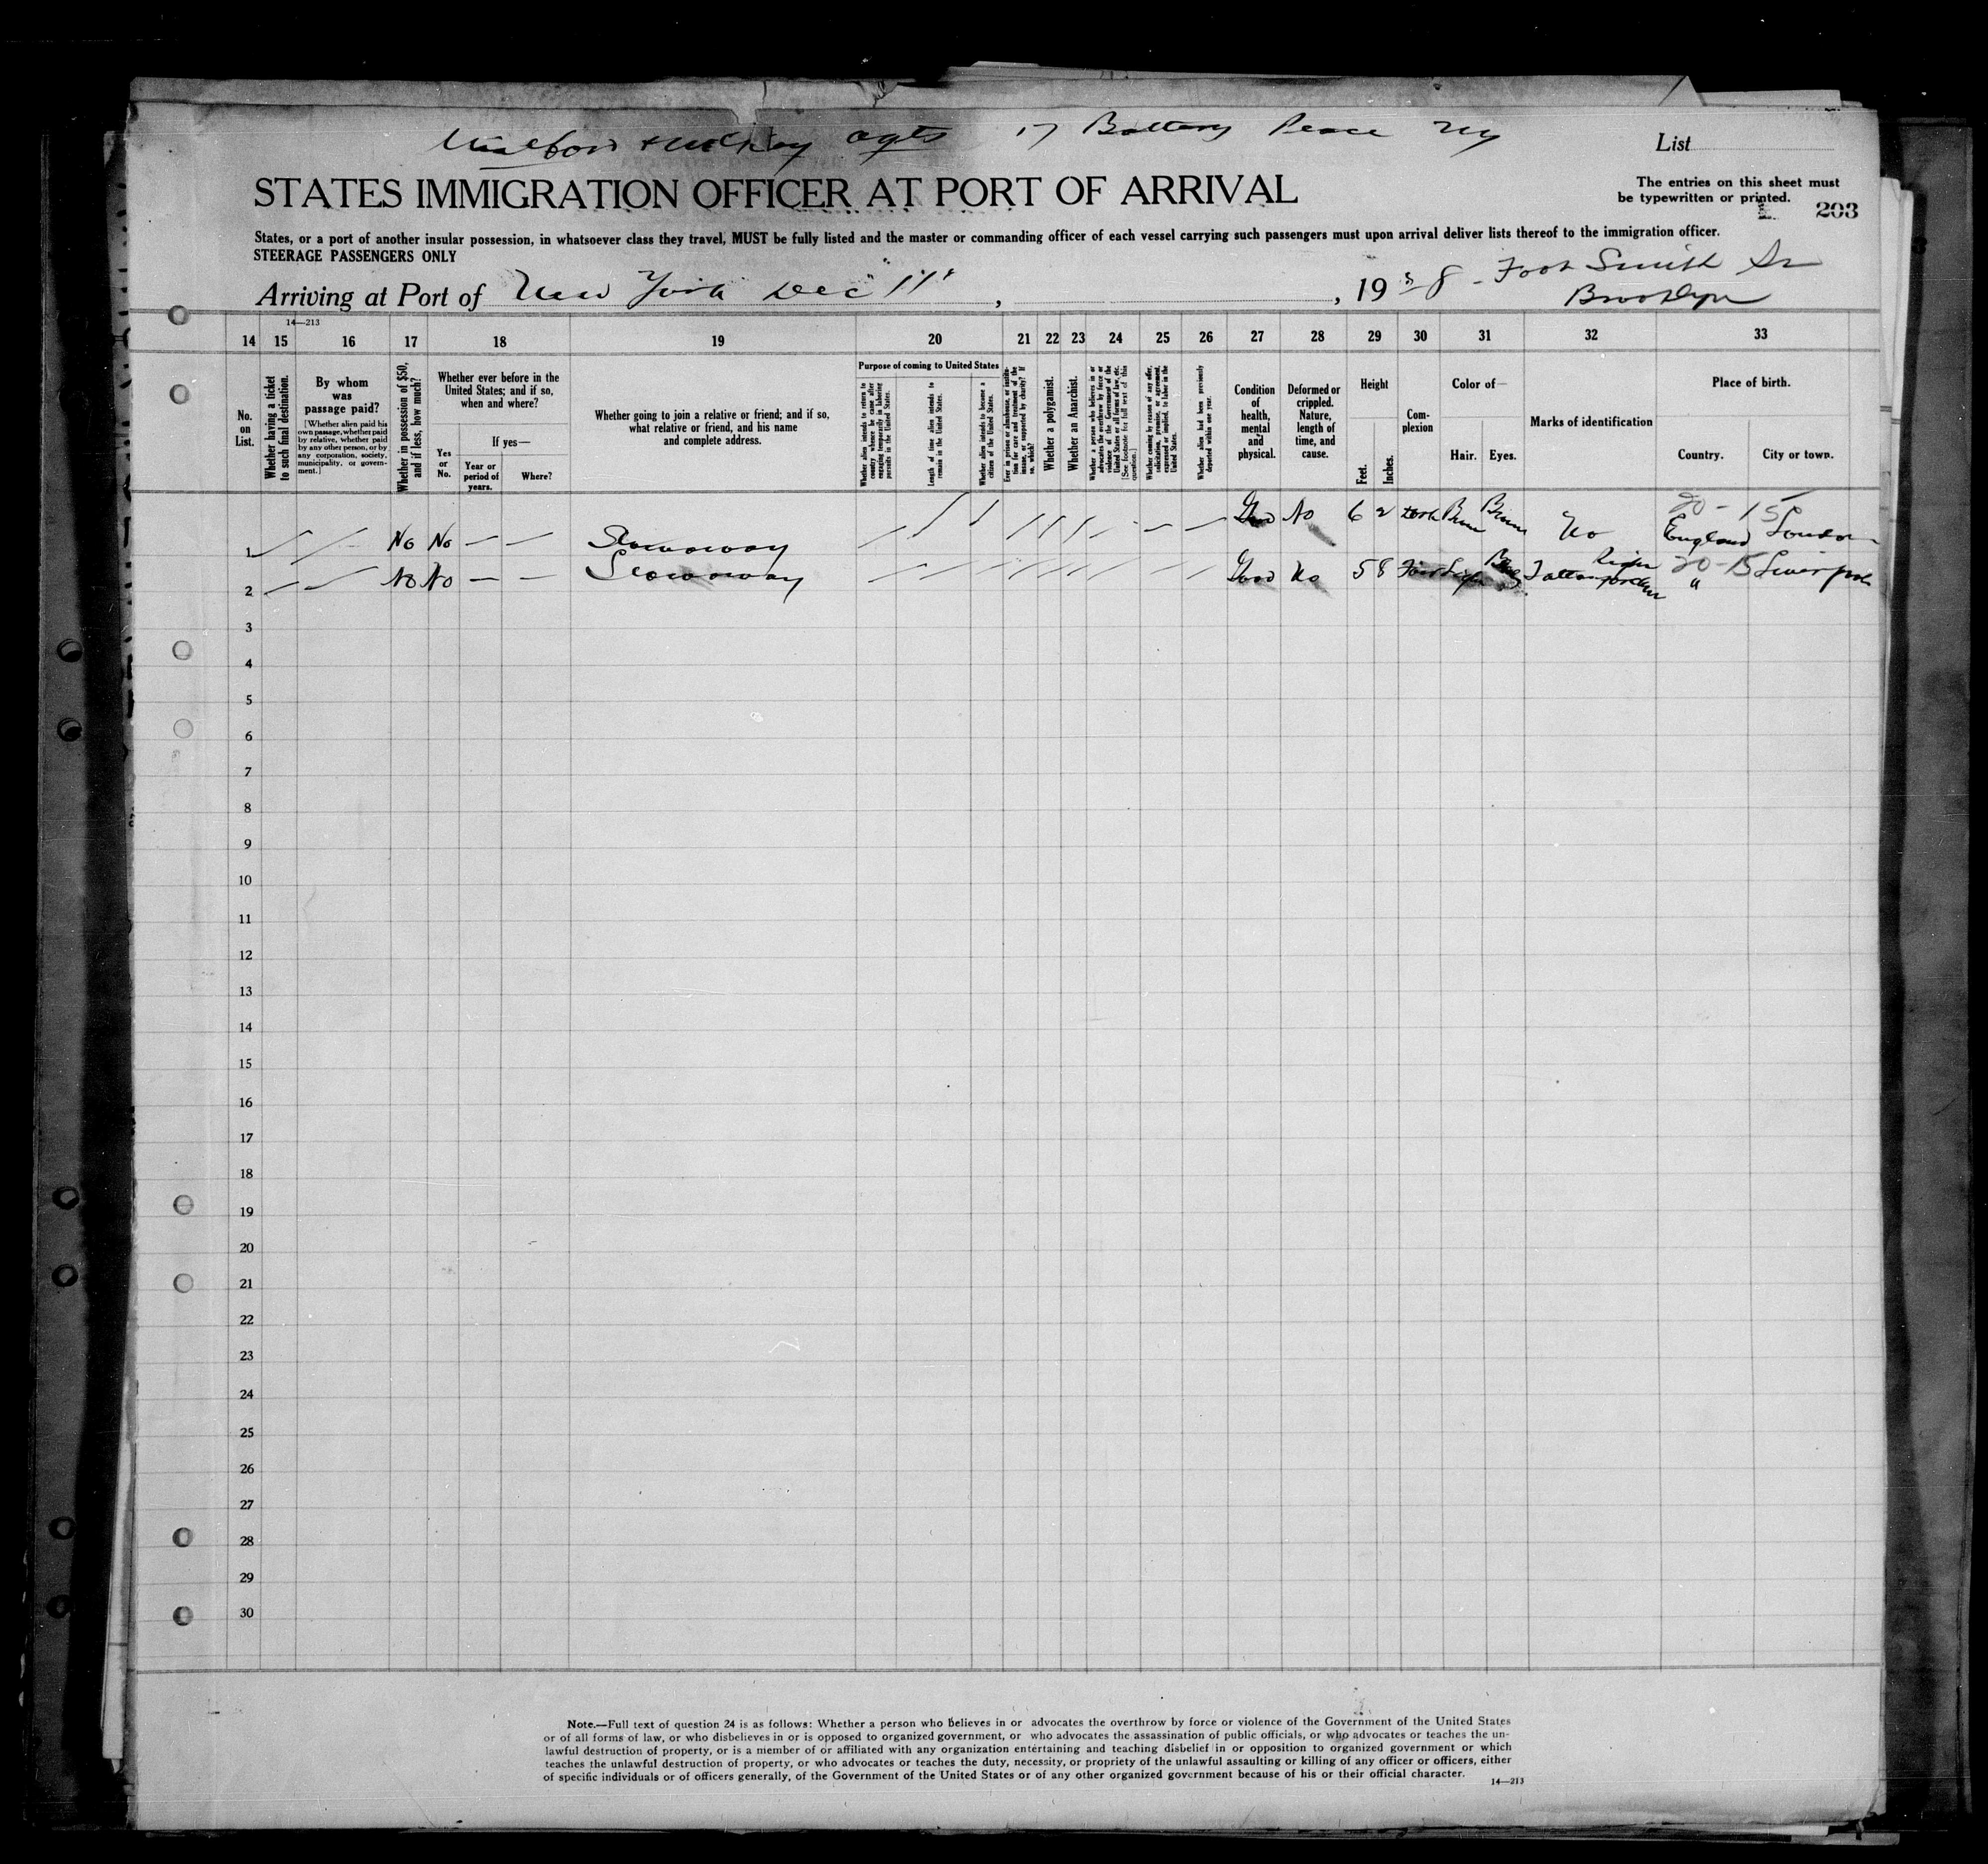 agts 17 Battery Place NY
List
STATES IMMIGRATION OFFICER AT PORT OF ARRIVAL
The entries on this sheet must
be typewritten or printed.
203
States, or a port of another insular possession, in whatsoever class they travel, MUST be fully listed and the master or commanding officer of each vessel carrying such passengers must upon arrival deliver lists thereof to the immigration officer.
STEERAGE PASSENGERS ONLY
Arriving at Port of New York Dec 11, , 1938 - Foot Smith St
Brooklyn
14—213
14 15 16 17 18 19 20 21 22 23 24 25 26 27 28 29 30 31 32 33
No. on List.
Whether having a ticket to such final destination.
By whom was passage paid?
[Whether alien paid his own passage, whether paid by relative, whether paid by any other person, or by any corporation, society, municipality, or government.]
Whether in possession of $50, and if less, how much?
Whether ever before in the United States; and if so, when and where?
Yes or No.
If yes—
Year or period of years.
Where?
Whether going to join a relative or friend; and if so, what relative or friend, and his name and complete address.
Purpose of coming to United States
Whether alien intends to return to country whence he came after engaging temporarily in laboring pursuits in the United States.
Length of time alien intends to remain in the United States.
Whether alien intends to become a citizen of the United States.
Ever in prison or almshouse, or institution for care and treatment of the insane, or supported by charity? If so, which?
Whether a polygamist.
Whether an Anarchist.
Whether a person who believes in or advocates the overthrow by force or violence of the Government of the United States or all forms of law, etc. [See footnote for full text of this question.]
Whether coming by reason of any offer, solicitation, promise, or agreement, expressed or implied, to labor in the United States.
Whether alien had been previously deported within one year.
Condition of health, mental and physical.
Deformed or crippled. Nature, length of time, and cause.
Height
Feet. Inches.
Complexion
Color of—
Hair. Eyes.
Marks of identification
Place of birth.
Country. City or town.
20 - 15
1 No No — — Stowaway Good No 6 2 Dark Brn Brown No England London
20-15
2 No No — — Stowaway Good No 5 8 Fair Light Blue Tattoo Right forearm " Liverpool
3
4
5
6
7
8
9
10
11
12
13
14
15
16
17
18
19
20
21
22
23
24
25
26
27
28
29
30
Note.—Full text of question 24 is as follows: Whether a person who believes in or advocates the overthrow by force or violence of the Government of the United States
or of all forms of law, or who disbelieves in or is opposed to organized government, or who advocates the assassination of public officials, or who advocates or teaches the un-
lawful destruction of property, or is a member of or affiliated with any organization entertaining and teaching disbelief in or opposition to organized government or which
teaches the unlawful destruction of property, or who advocates or teaches the duty, necessity, or propriety of the unlawful assaulting or killing of any officer or officers, either
of specific individuals or of officers generally, of the Government of the United States or of any other organized government because of his or their official character.
14—213